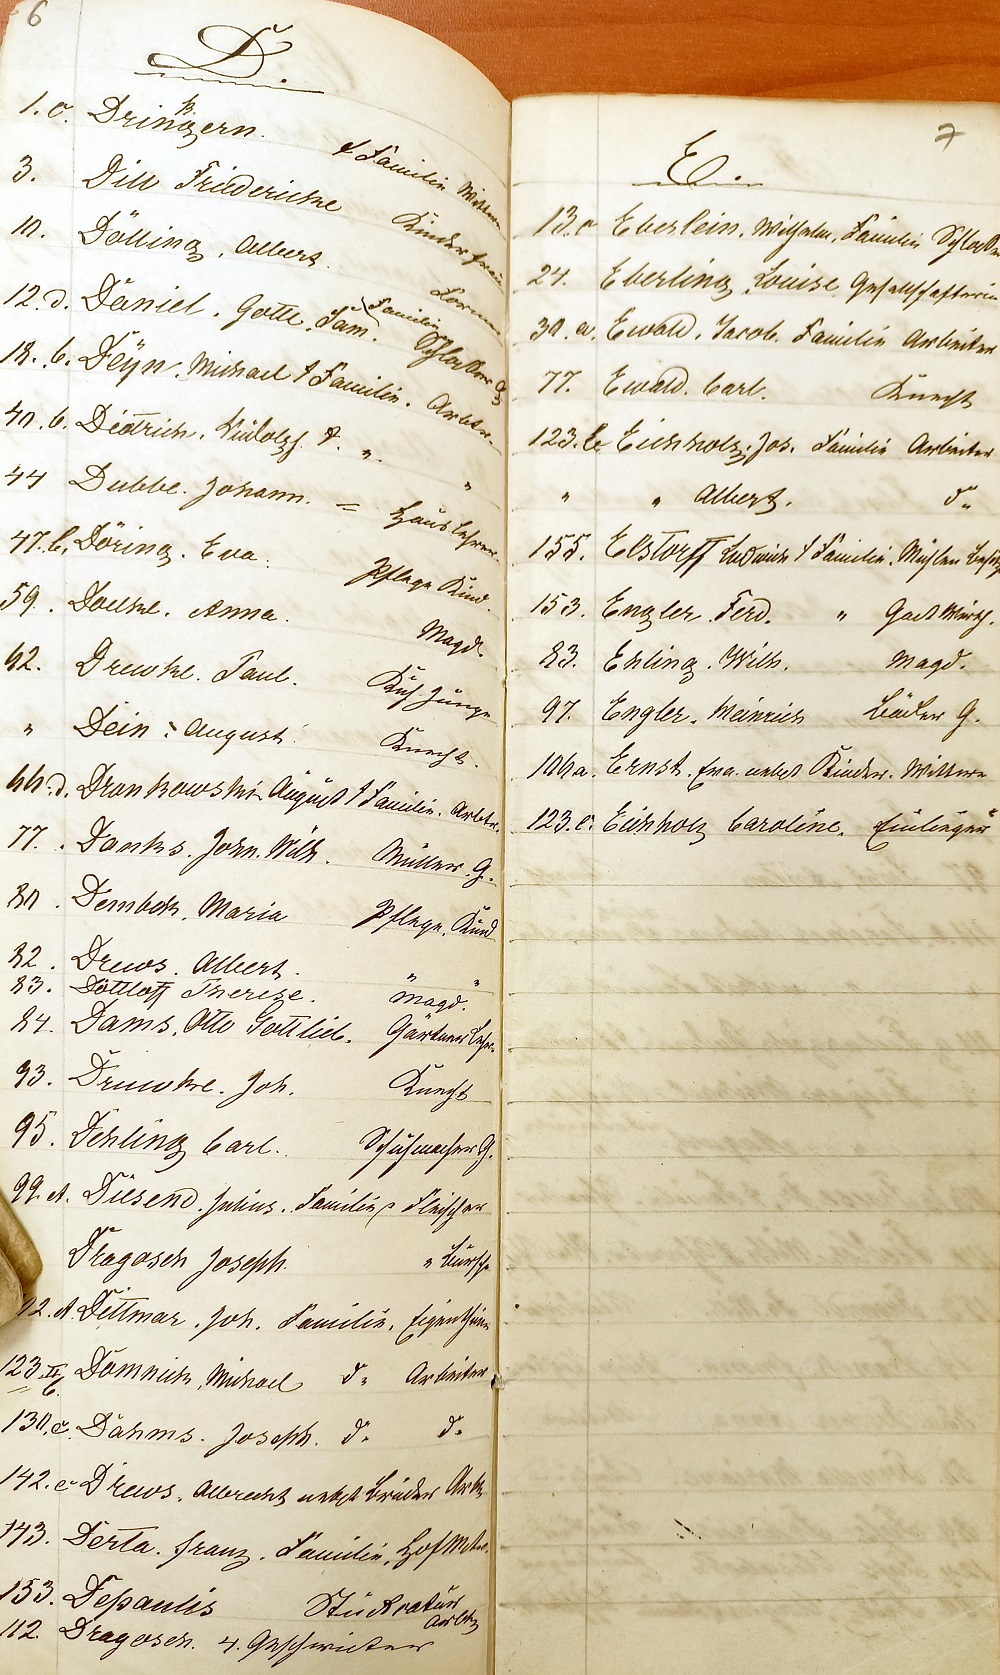 6
D.
1. c. Dringern. & Familie Wittwe
3. Dill Friedericke Kinderfrau
10. Dölling, Albert.
12. d. Daniel. Gottl. Fam. Familie Schlosser
18. b. Deyn. Michael & Familie. Arbtr.
40. b. Diedrich. Rudolf &. " "
44 Dubbe. Johann. = Hauslehrer
47. b. Döring. Eva. Pflege Kind.
59. Doelke. Anna. Magd.
62. Drewke. Paul. Kuh Junge
" Dein: August. Knecht.
66. d. Dronkowski August & Familie. Arbtr.
77. Danks. John. Wilh. Müller. G.
80. Dembek. Maria Pflege. Kind
82. Drews. Albert. " "
83. Dottloff Therese. Magd.
84. Dams. Otto Gottlieb. Gärtner Lehr.
93. Druwke. Joh. Knecht
95. Dehling Carl. Schuhmacher G.
99. A. Diesend. Julius. Familie Fleischer
Dragosch Joseph. " Bursche
12. A. Dittmar. Joh. Familie. Eigenthüm
123. II b. Domnick, Michael d. Arbeiter
130. c. Dahms. Joseph. d. d.
142. c. Drews. Albrecht nebst Bruder Arb.
143. Derta. Franz. Familie. Hof Mstr.
153. Depaulis Stuckatur Arbtr
112. Dragosch. 4. Geschwister
7
E.
13. c Eberlein. Wilhelm. Familie Schlosser
24. Eberling Louise Gesellschafterin
30. a. Ewald. Jacob. Familie Arbeiter
77. Ewald. Carl. Knecht
123. b Eichholz. Jos. Familie Arbeiter
" " Albert. d.
155. Elstorff Ludwich & Familie. Mühlen Besitz
153. Engler. Ferd. " Gast Wirth.
83. Ehling. Wilh. Magd.
97. Engler. Heinrich Bäcker G.
106a. Ernst. Eva. nebst Kinder. Wittwe
123. c. Eichholz Caroline. Einlieger